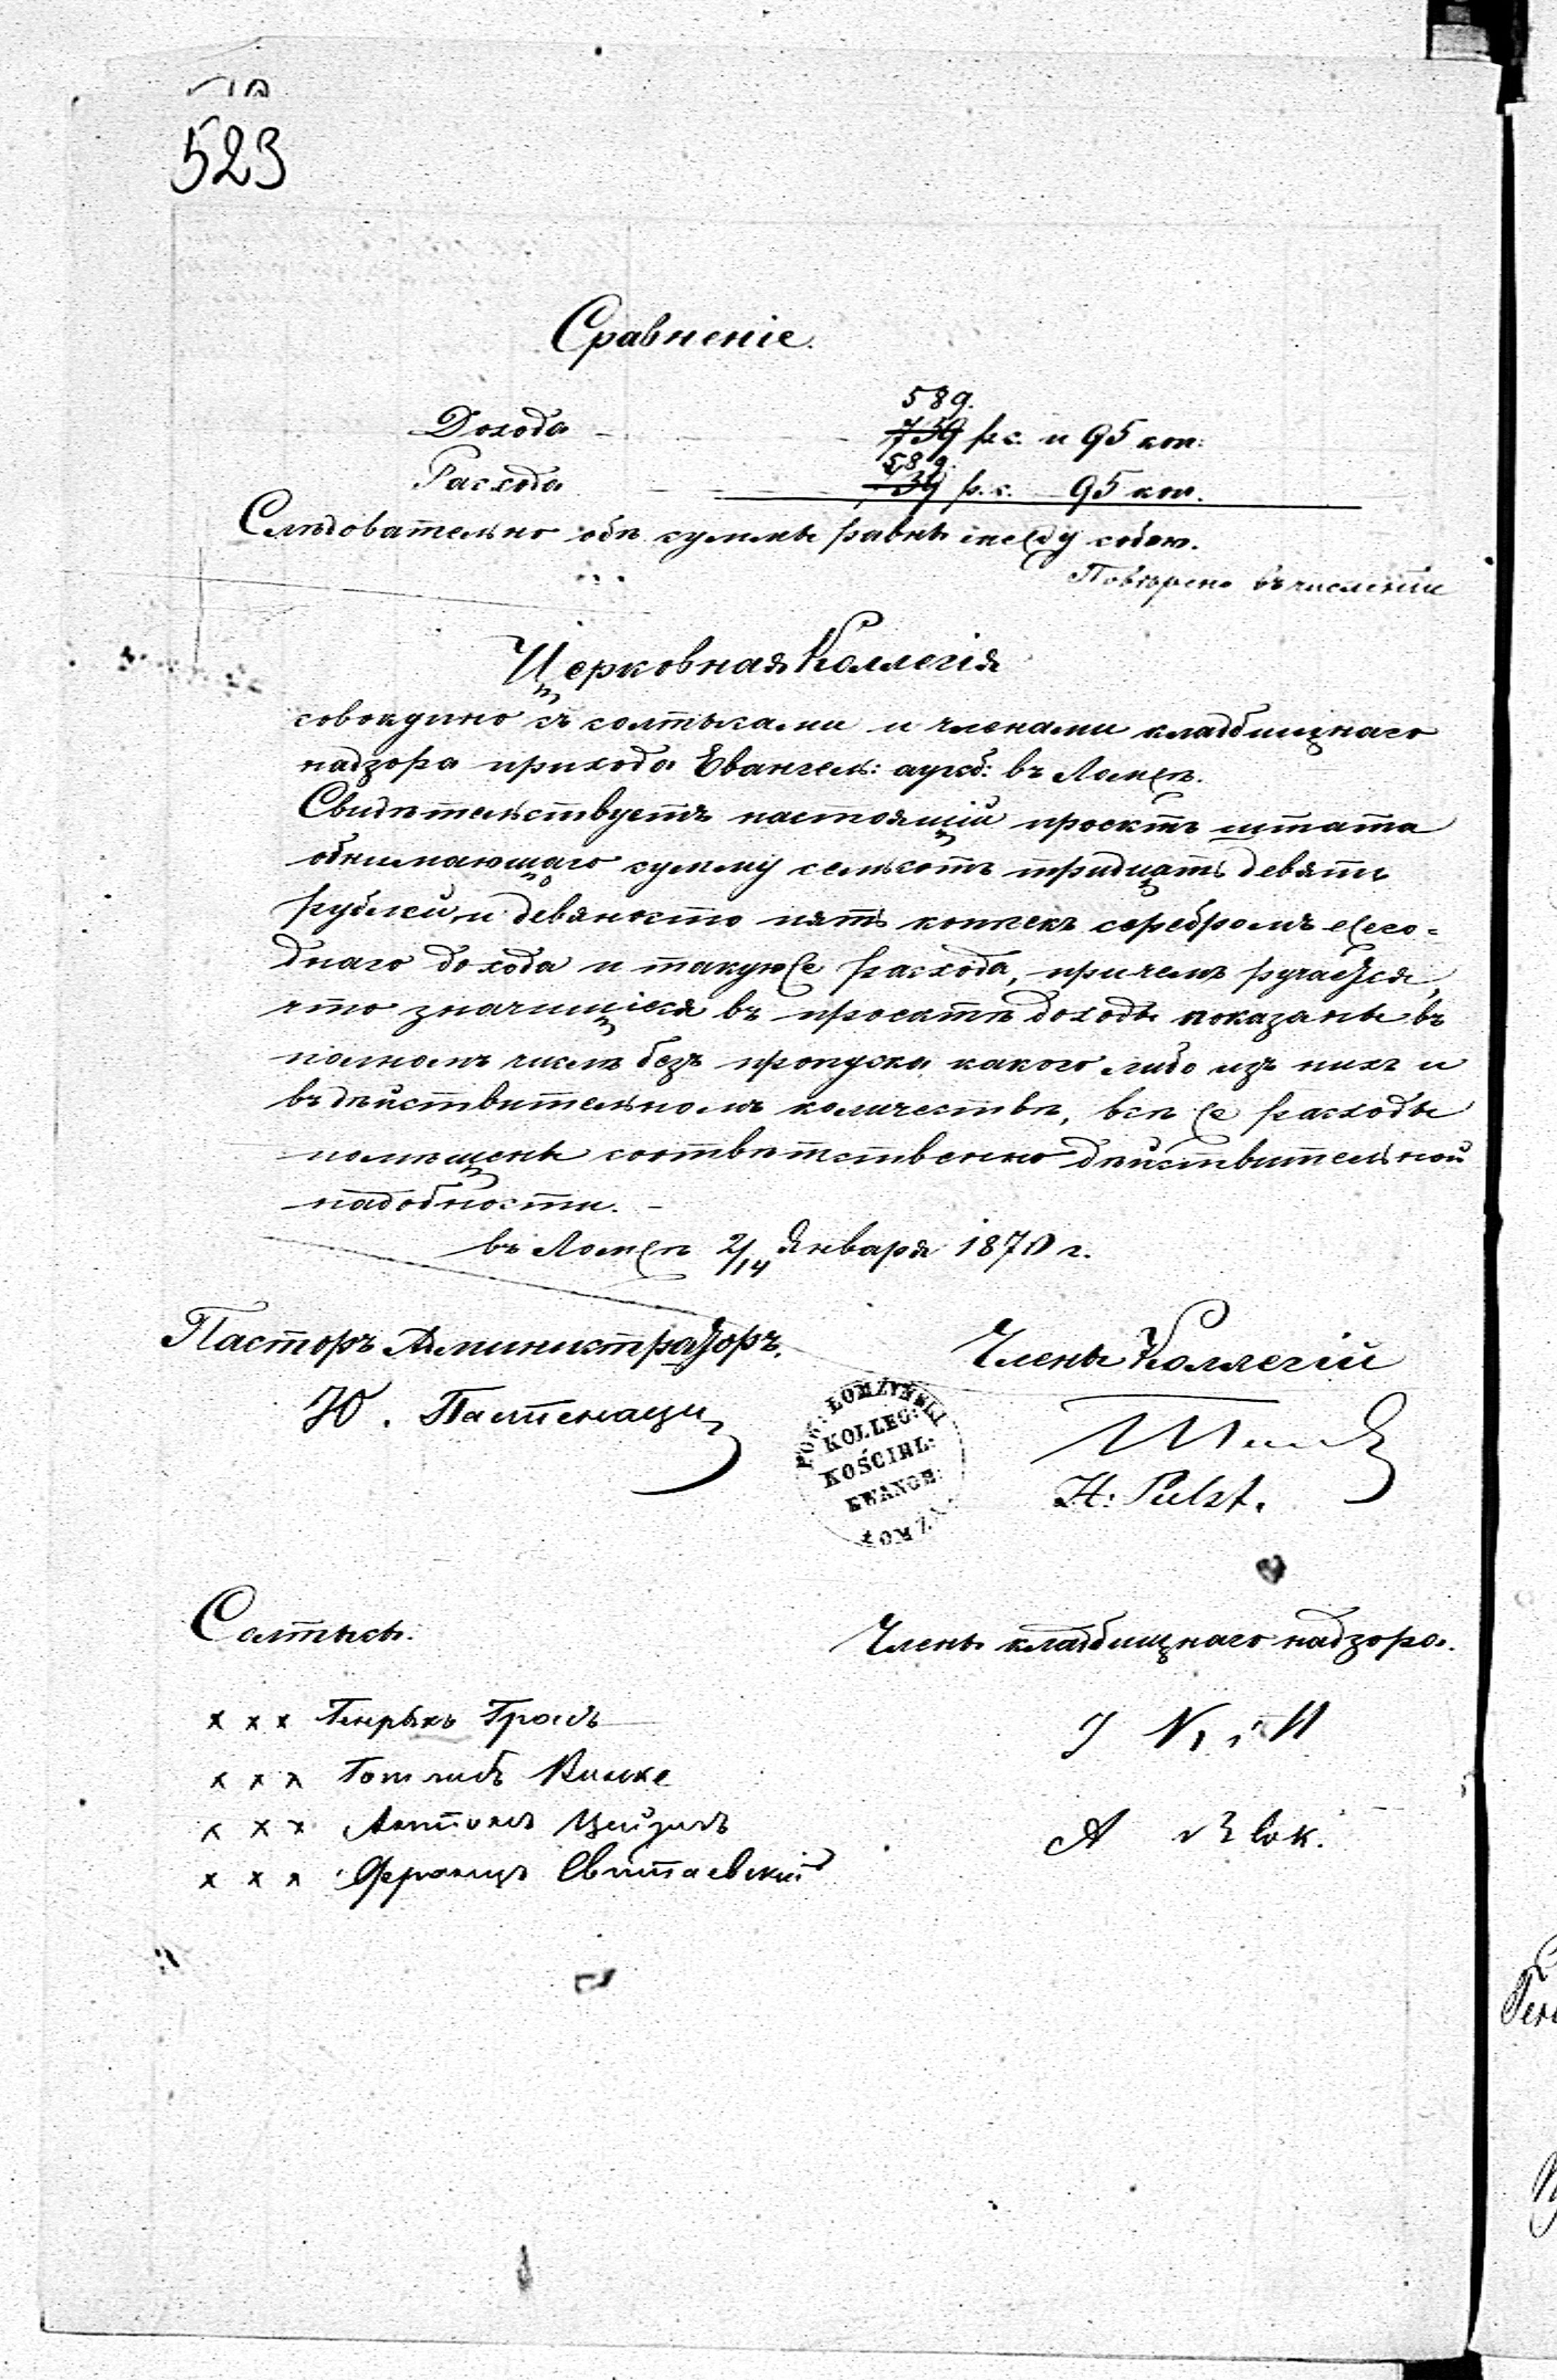 523
Сравненіе.
589.
Дохода 739 р.с. и 95 коп:
589.
Расхода 739 р.с. 95 коп.
Слѣдовательно обѣ суммы равны между собою.
Повѣрено въ численіи
Церковная Коллегія
совокупно съ солтысами и членами кладбищнаго
надзора прихода Евангель: аугсб: въ Ломжѣ.
Свидѣтельствуетъ настоящій проектъ штата
обнимающаго сумму семьсотъ тридцать девять
рублей и девяносто пять копѣекъ серебромъ ежего-
днаго дохода и такуюже расхода, причемъ ручается,
что значищіеся въ проектѣ доходы показаны въ
полномъ числѣ безъ пропуска какого либо изъ нихъ и
въ дѣйствительномъ количествѣ, всѣ же расходы
помѣщены соотвѣтственно дѣйствительной
надобности.
въ Ломжѣ 2/14 Января 1870 г.
Пасторъ Администраторъ.
Члены Коллегій
Ю.
POW: ŁOMŻYŃSKI
KOLLEG:
KOŚCIEL:
EWANGE:
ŁOMŻA
H: Pulst.
Солтысы.
Члены кладбищнаго надзора.
x x x Генрыхъ
x x x Готлибъ
x x x Антонъ
x x x Францъ
A Block.